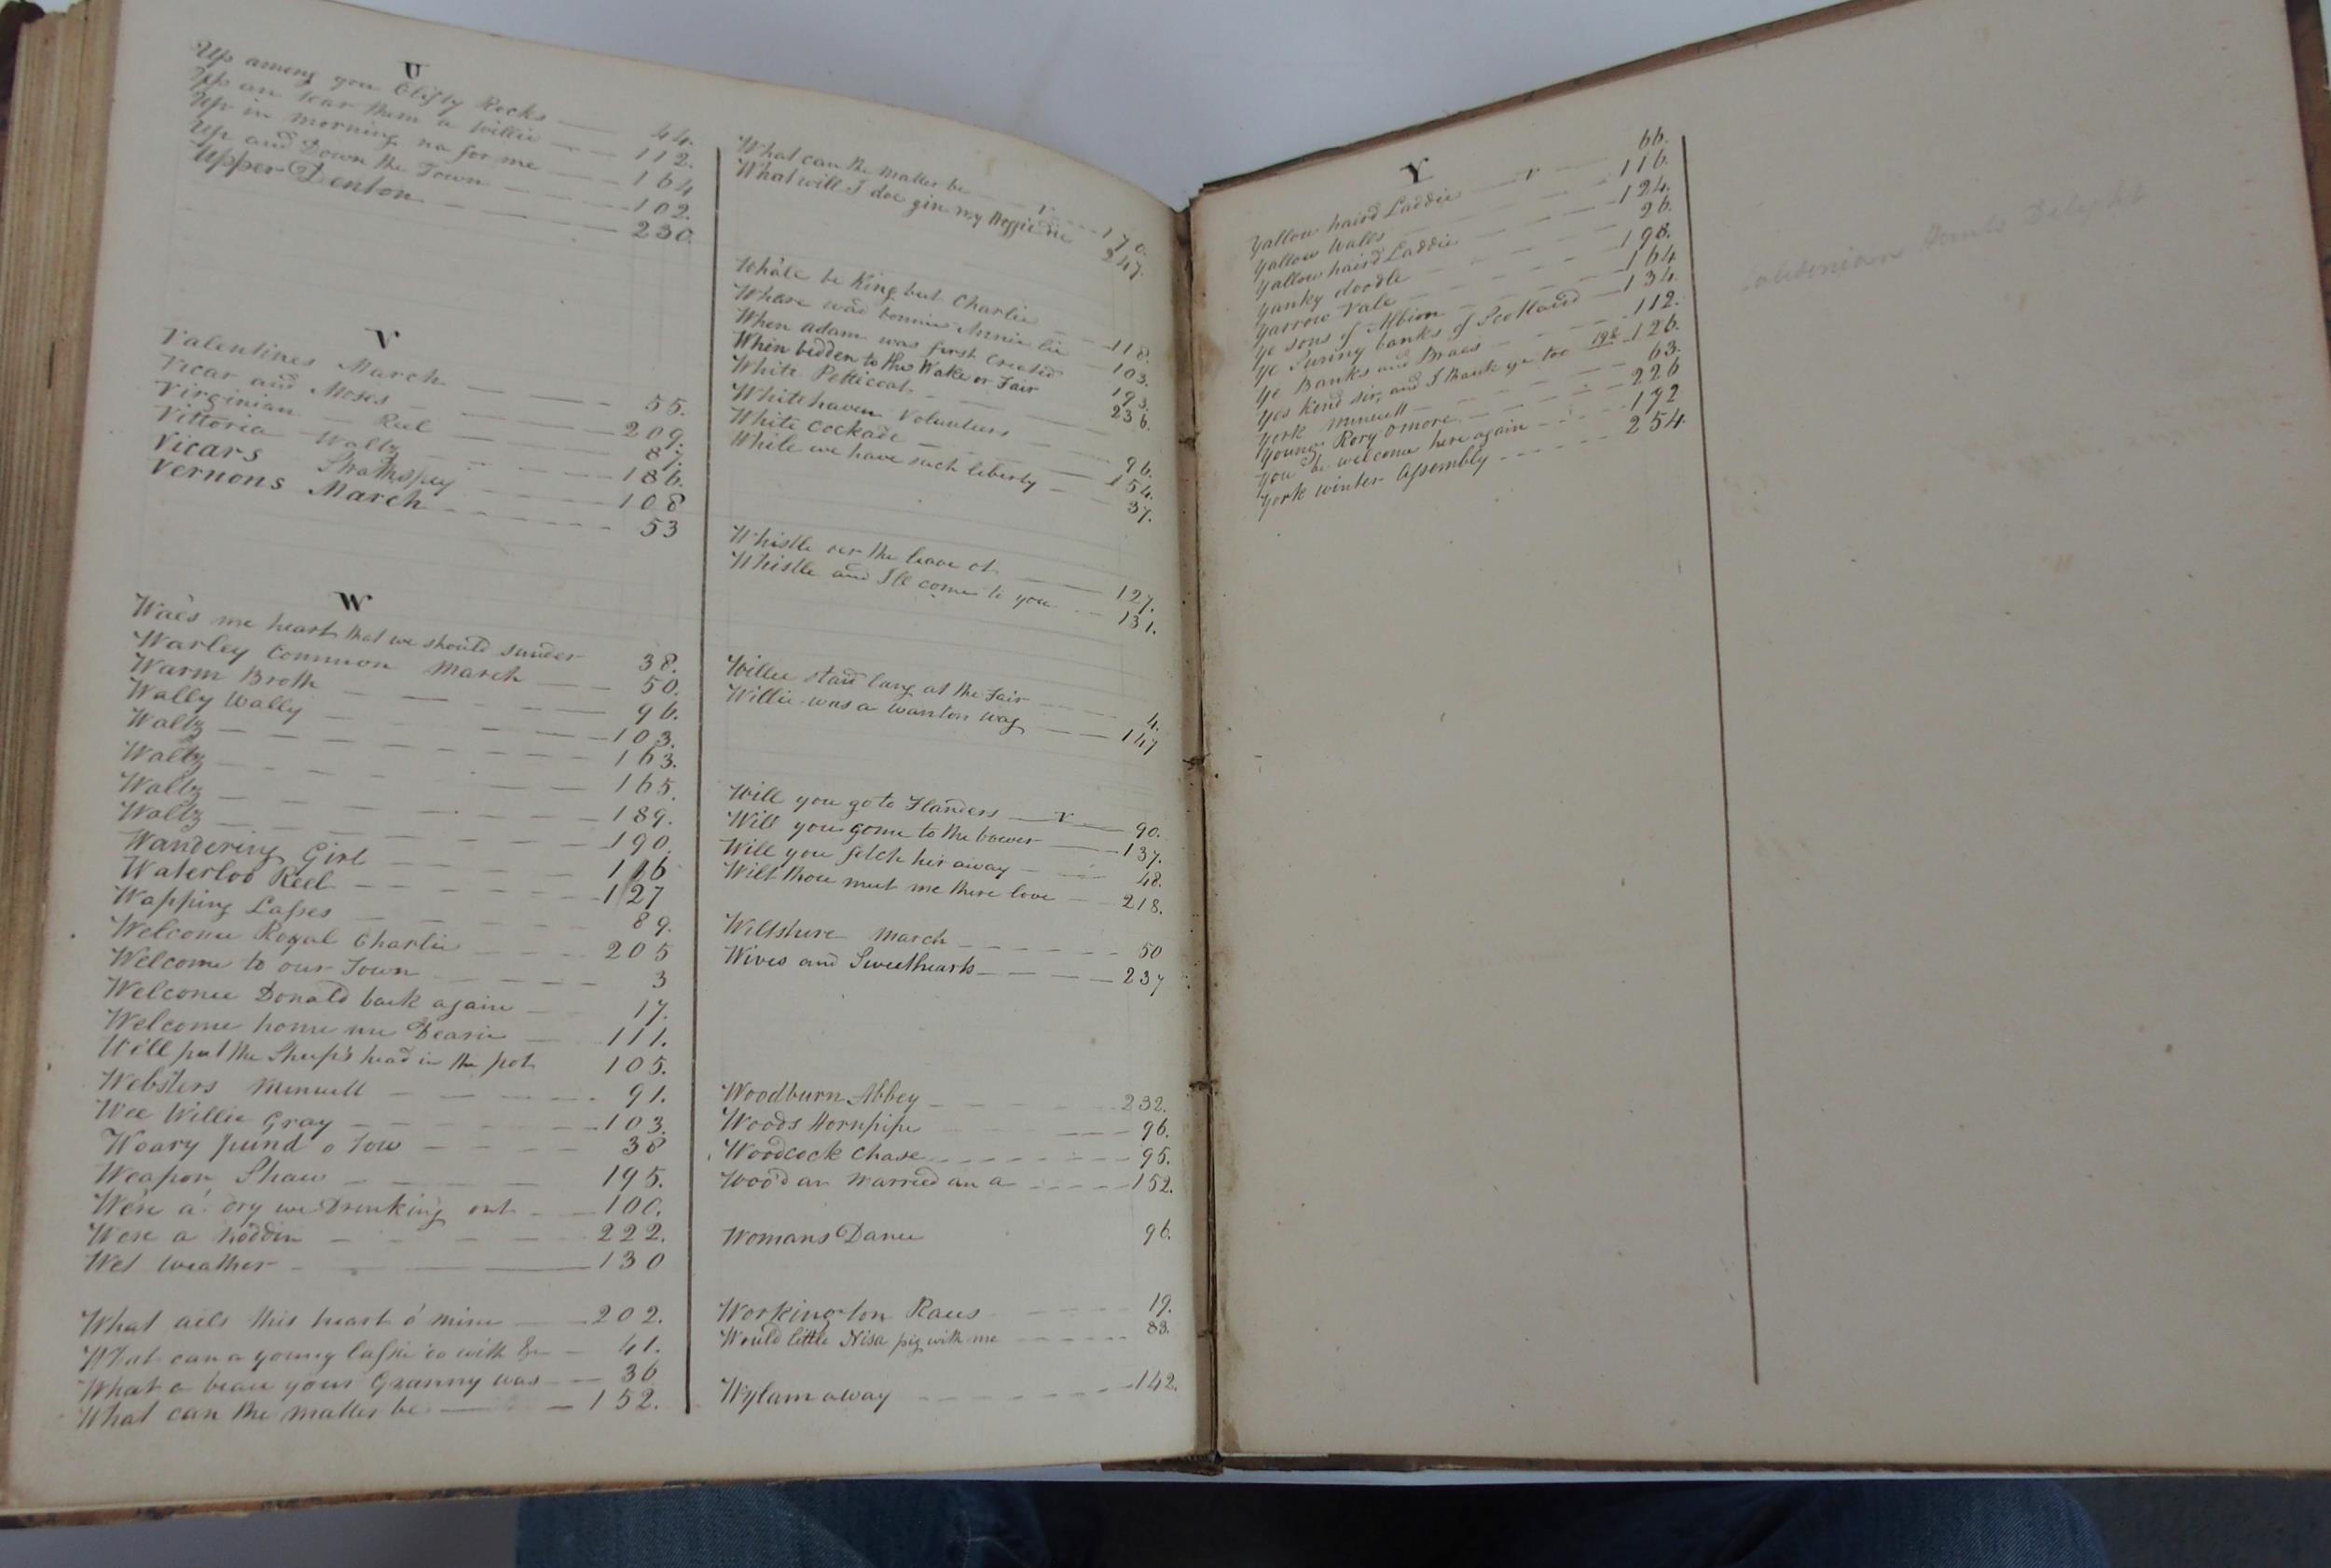 U
Up among yon Clifty Rocks — 44.
Up an war them a Willie — 112.
Up in morning na for me — 164
Up and Down the Town — 102.
Upper Denton — 230.
V
Valentines March — 55.
Vicar and Moses — 209.
Virginian Reel — 87.
Vittoria Waltz — 186.
Vicars Strathspey — 108
Vernons March — 53
W
Waes me heart that we should sunder 38.
Warley Common March — 50.
Warm Broth — 96.
Wally Wally — 103.
Waltz — 163.
Waltz — 165.
Waltz — 189.
Waltz — 190.
Wandering Girl — 116
Waterloo Reel — 127
Wapping Lasses — 89.
Welcome Royal Charlie — 205
Welcome to our Town — 3
Welcome Donald back again — 17.
Welcome home me Dearie — 111.
We'll put the Sheep's head in the pot 105.
Websters Minuett — 91.
Wee Willie Gray — 103.
Weary pund o tow — 38
Weapon Shaw — 195.
We're a' dry wi Drinking ont — 100.
Were a noddin — 222.
Wet weather — 130
What ails this heart o' mine — 202.
What can a young lassie do with — 41.
What a beau your Granny was — 36
What can the matter be — 152.
What can the matter be — 170.
What will I doe gin my Hoggie die 247.
Whale be King but Charlie — 118.
Whare wad bonnie Annie lie — 103.
When adam was first Created 193.
When bidden to the Wake or Fair 236.
White Petticoat
Whitehaven Volunteers — 96.
White Cockade — 154.
While we have such liberty — 37.
Whistle oer the leave ot — 127.
Whistle and Ill come to you — 131.
Willie stard lang at the Fair — 4.
Willie was a wanton wag — 147
Will you go to Flanders — V — 90.
Will you come to the bower — 137.
Will you fetch her away — 48.
Wilt thou meet me there love — 218.
Wiltshire March — 50
Wives and Sweethearts — 237
Woodburn Abbey — 232.
Woods Hornpipe — 96.
Woodcock Chase — 95.
Woo'd an Married an a — 152.
Womans Dance 96.
Workington Races — 19.
Would little Nisa pig with me — 83.
Wylam away — 142.
Y
Yallow haird Laddie — V — 66.
Yallow Walls — 116.
Yallow haird Laddie — 124.
Yanky doodle — 26.
Yarrow Vale — 198.
Ye sons of Albion — 164
Ye Sunny banks of Scotland — 134.
Ye Banks and Braes — 112.
Yes kind sir, and I thank ye too 198 126.
York Minuett — 63.
Young Rory Omore — 226
You be welcome here again — 172
York winter Assembly — 254.